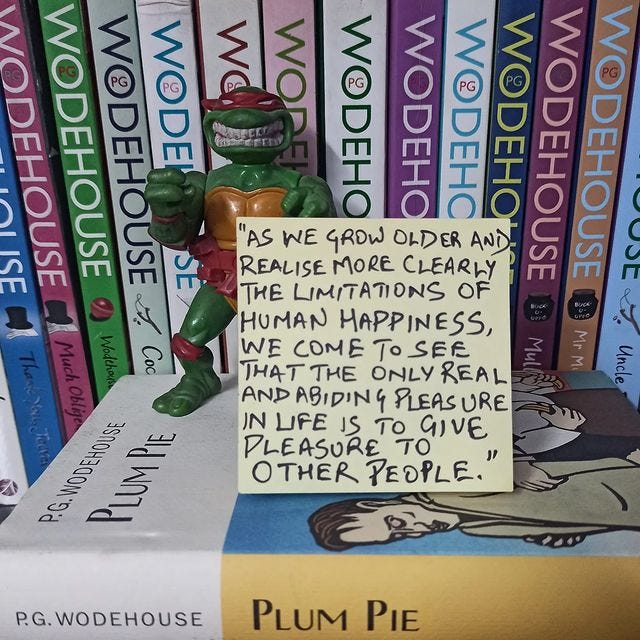 WODEHOUSE
PG
WODEHOUSE
PG
WODEHOUSE
PG
WODEHOUSE
PG
WODE
PG
WO
WODEH
WODEHO
PG
WODEHOUSE
PG
WODEHO
PG
WODEHOUSE
PG
WODEHOUSE
PG
WODEHOUSE
PG
WODEHOUSE
HOUSE
SE
Much Oblige
Coc
BUCK-
U-
UPPO
BUCK-
U-
UPPO
Mul
Mr M
Uncle
"AS WE GROW OLDER AND
REALISE MORE CLEARLY
THE LIMITATIONS OF
HUMAN HAPPINESS,
WE COME TO SEE
THAT THE ONLY REAL
AND ABIDING PLEASURE
IN LIFE IS TO GIVE
PLEASURE TO
OTHER PEOPLE."
P.G. WODEHOUSE
PLUM PIE
P.G. WODEHOUSE
PLUM PIE